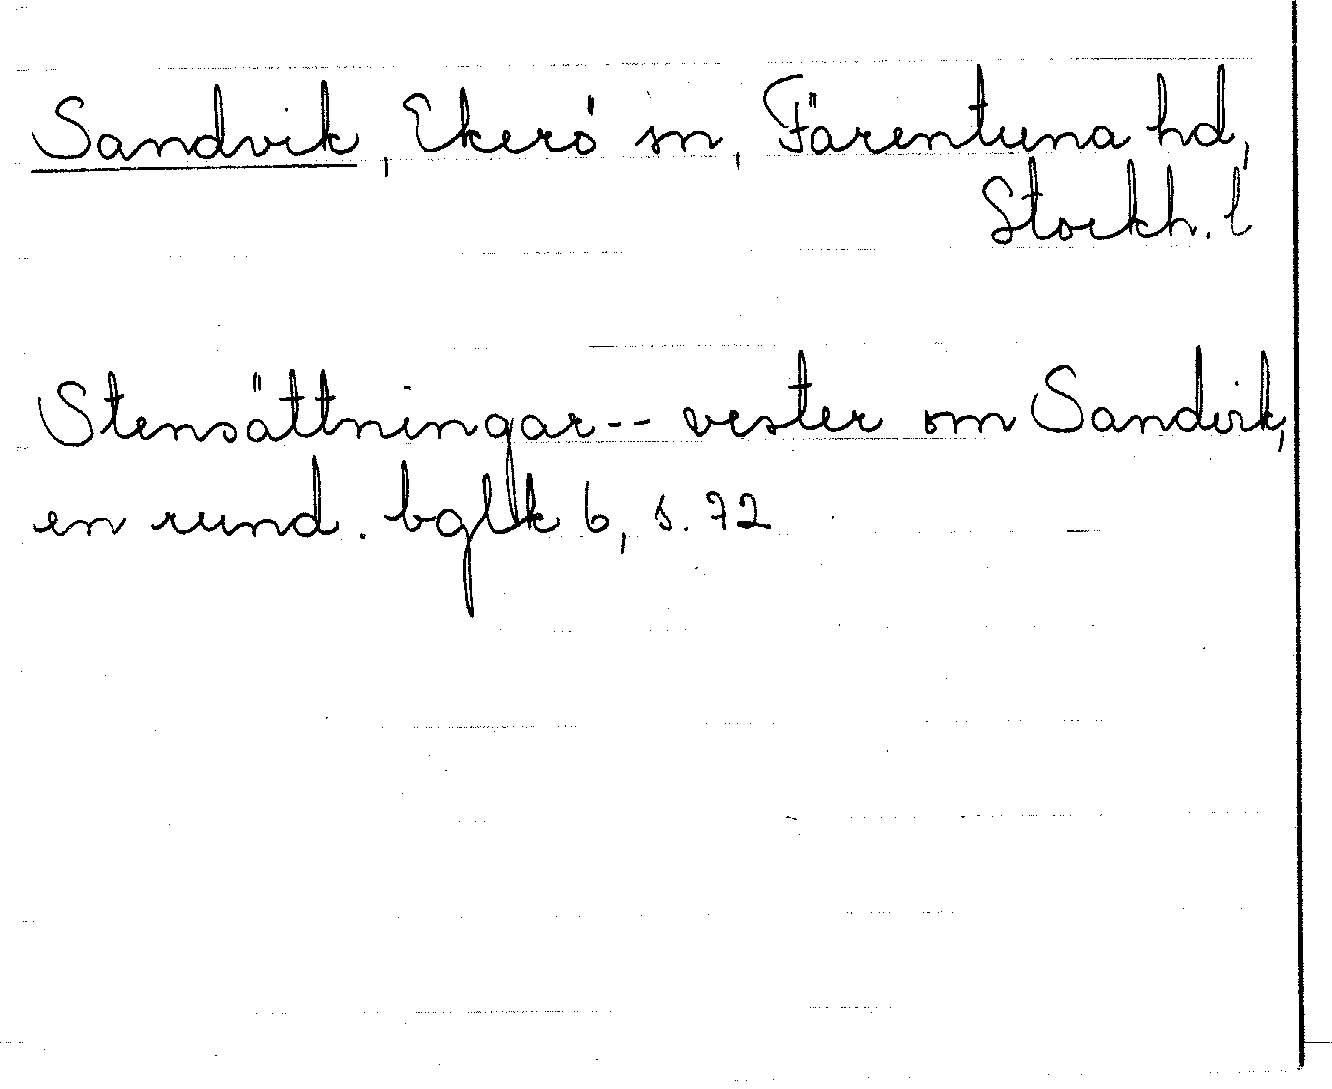 Sandvik, Ekerö sn, Färentuna hd,
Stockh. l
Stensättningar-- vester om Sandvik,
en rund. bglk 6, s. 72